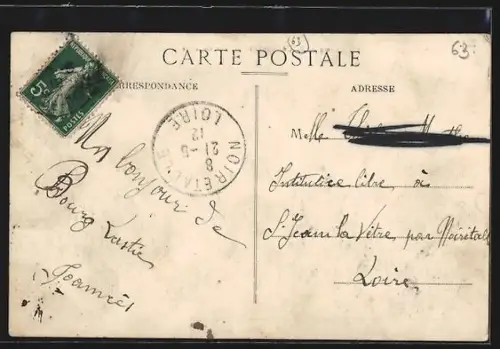 63
63
CARTE POSTALE
RRESPONDANCE
ADRESSE
5c
POSTES
NOIRETABLE
8
21-5
12
LOIRE
Un bonjour de
Bourg Lastic
Melle
Institutrice libre à
St Jean la Vêtre par Noirétable
Loire